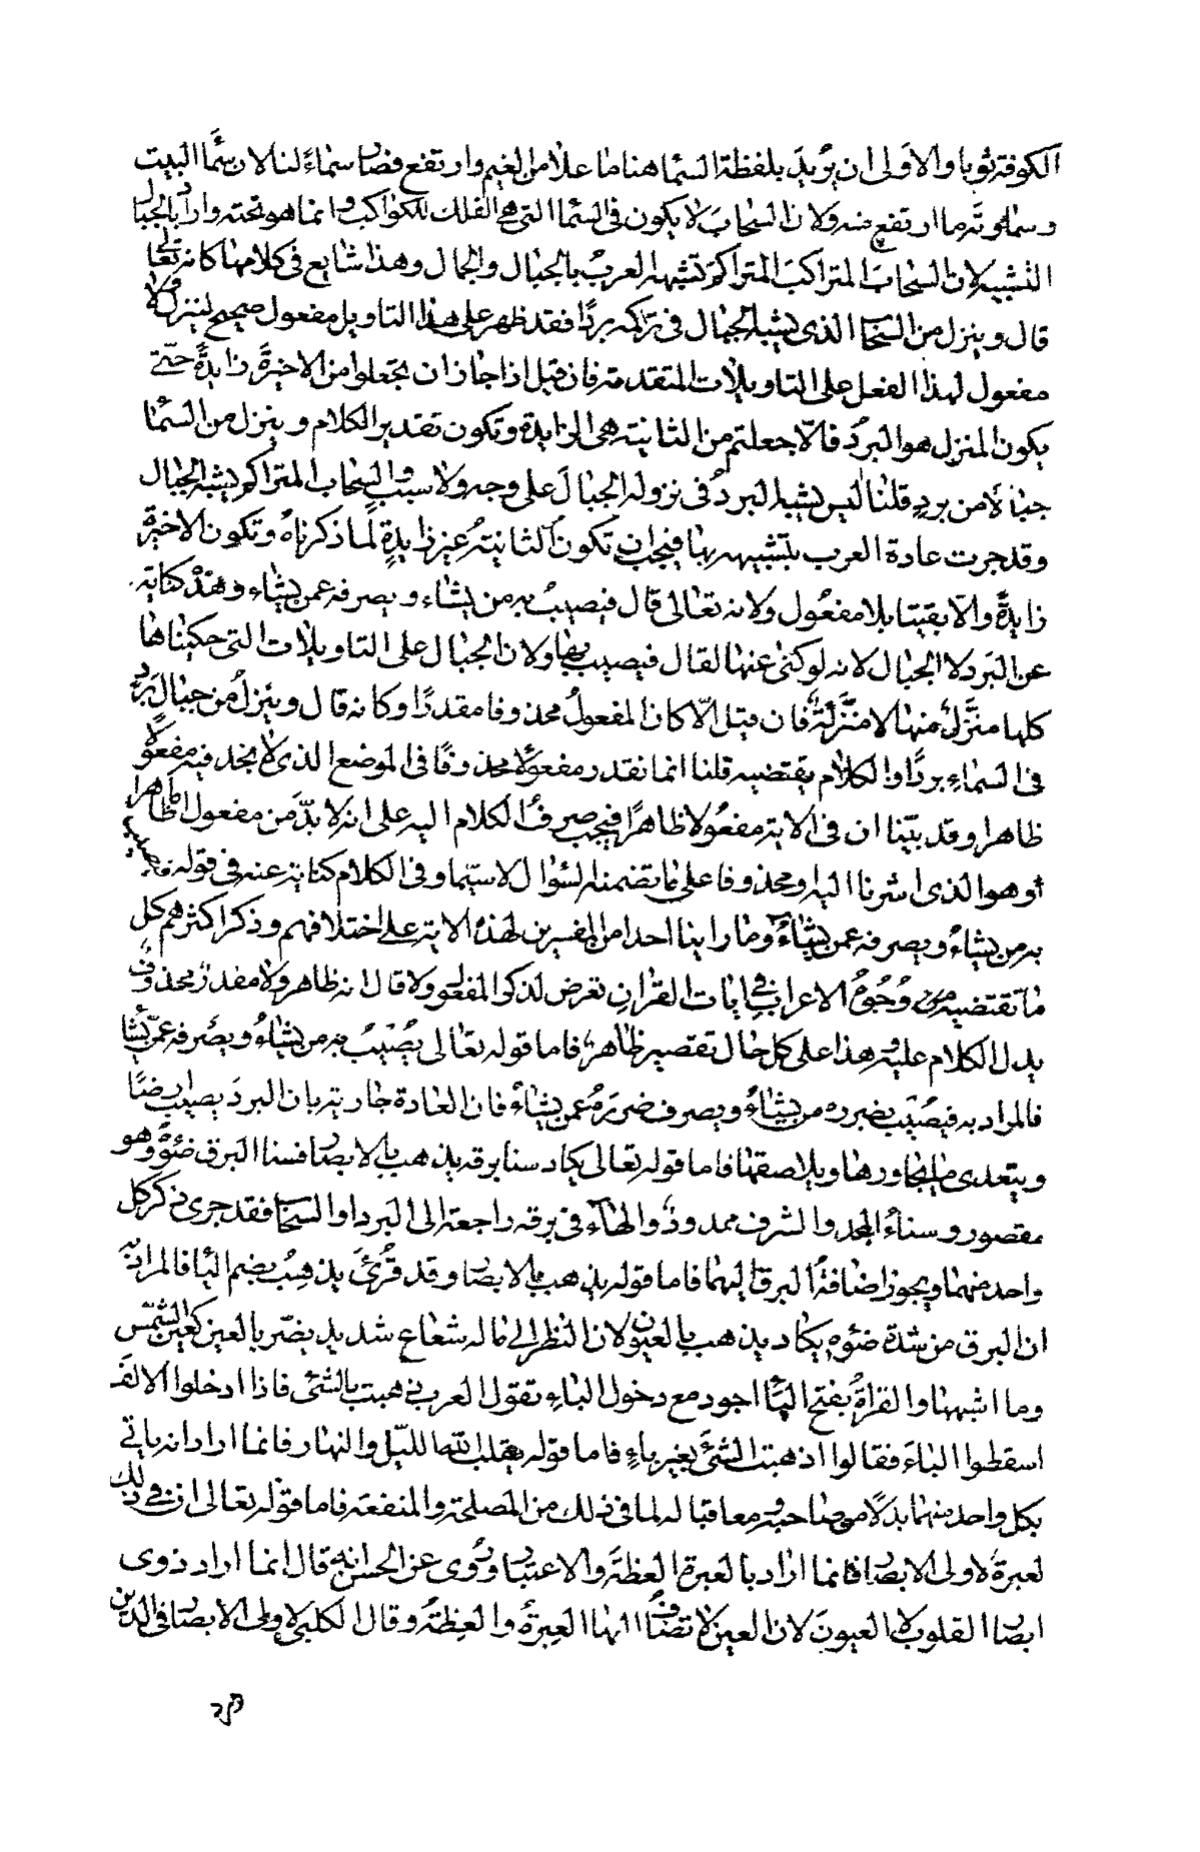 الكوفة ثوبا والاولى ان يريد بلفظة السما هنا ما علا من الغيم وارتفع فصار سماءً لنا لان سما البيت
وسماوته ما ارتفع منه ولان السحاب لا يكون في السما التي هي الفلك للكواكب وانما هو تحته واراد بالجبال
التشبيه لان السحاب المتراكب المتراكم تشبهه العرب بالجبال والجمال وهذا شايع في كلامها كانه تعالى
قال وينزل من السحاب الذي يشبه الجبال في تراكمه بردًا فقد ظهر على هذا التاويل مفعول صحيح لينزل ولا
مفعول لهذا الفعل على التاويلات المتقدمة فان قيل اذا جاز ان تجعلوا من الاخيرة زايدةً حتى
يكون المنزل هو البرد فالّا جعلتم من الثانية هي الزايدة وتكون تقدير الكلام وينزل من السما
جبالًا من بردٍ قلنا ليس يشبه البرد في نزوله الجبال على وجه ولا سبب والسحاب المتراكم يشبه الجبال
وقد جرت عادة العرب بتشبيهه بها فيجب ان تكون الثانية غير زايدةٍ لما ذكرناه وتكون الاخيرة
زايدةً والّا بقيتا بلا مفعول ولانه تعالى قال فيصيب به من يشاء ويصرفه عن من يشاء وهذه كناية
عن البرد لا الجبال لانه لو كنى عنها لقال فيصيب بها ولان الجبال على التاويلات التي حكيناها
كلها منزَّل منها لا منزَّلة فان قيل الّا كان المفعول محذوفا مقدرًا وكانه قال وينزل من جبال برد
في السماء بردًا والكلام يقتضيه قلنا انما نقدر مفعولًا محذوفًا في الموضع الذي لا نجد فيه مفعولًا
ظاهرا وقد بيّنا ان في الاية مفعولا ظاهرًا فيجب صرف الكلام اليه على انه لا بدّ من مفعول اما ظاهرا
أو هو الذي اشرنا اليه او محذوفا على ما تضمنه السؤال لا سيما وفي الكلام كناية عنه في قوله فيصيب
به من يشاء ويصرفه عن من يشاء وما راينا احدا من المفسرين لهذه الاية على اختلافهم وذكر اكثرهم كل
ما تقتضيه من وجوه الاعراب في ايات القران تعرض لذكر المفعول ولا قال انه ظاهر ولا مقدر محذوف
يدل الكلام عليه وهذا على كل حال تقصير ظاهر فاما قوله تعالى يصيب به من يشاء ويصرفه عن من يشا
فالمراد به فيصيب بضرره من يشاء ويصرف ضرره عمن يشاء فان العادة جارية بان البرد يصيب ارضًا
ويتعدى ما يجاورها ويلاصقها فاما قوله تعالى يكاد سنا برقه يذهب بالابصار فسنا البرق ضوؤه وهو
مقصور وسناء المجد والشرف ممدود والهاء في برقه راجعة الى البرد او السحاب فقد جرى ذكر كل
واحد منهما ويجوز اضافة البرق اليهما فاما قوله يذهب بالابصار وقد قُرئ يذهب بضم اليا فالمراد به
ان البرق من شدة ضوءه يكاد يذهب بالعيون لان النظر الى ما له شعاع شديد يضرّ بالعين كعين الشمس
وما اشبهها والقراة بفتح اليا اجود مع دخول الباء تقول العرب ذهبت بالشئ فاذا ادخلوا الالف
اسقطوا الباء فقالوا اذهبت الشئ بغير باءٍ فاما قوله يقلب الله الليل والنهار فانما اراد انه ياتي
بكل واحد منهما بدلًا من صاحبه ومعاقبا له لما في ذلك من المصلحة والمنفعة فاما قوله تعالى ان في ذلك
لعبرة لاولى الابصار فانما اراد بالعبرة العظة والاعتبار وروى عن الحسن انه قال انما اراد ذوى
ابصار القلوب لا العيون لان العين لا تضاف اليها العبرة والعظة وقال الكلبي لاولى الابصار في الدين